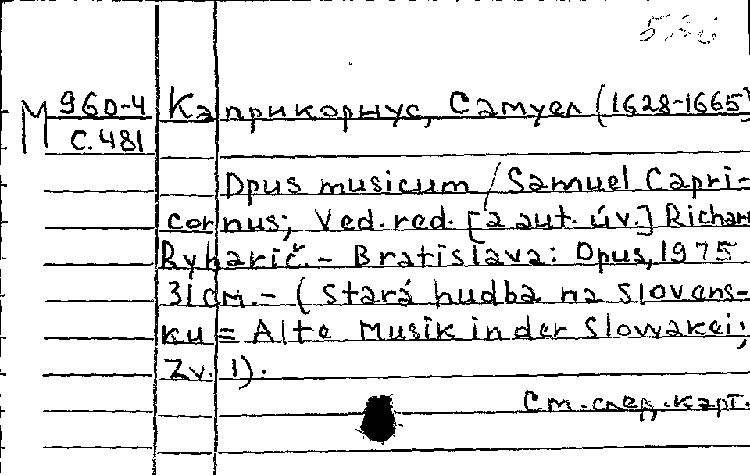 М 960-4 Каприкорнус, Самуел (1628-1665)
С.481
Opus musicum / Samuel Capri-
cornus; Ved. red. [a aut. úv.] Richard
Rybarič. - Bratislava: Opus, 1975
31 cm. - (Stará hudba na Slovens-
ku = Alte Musik in der Slowakei;
Zv. 1).
См. след. карт.